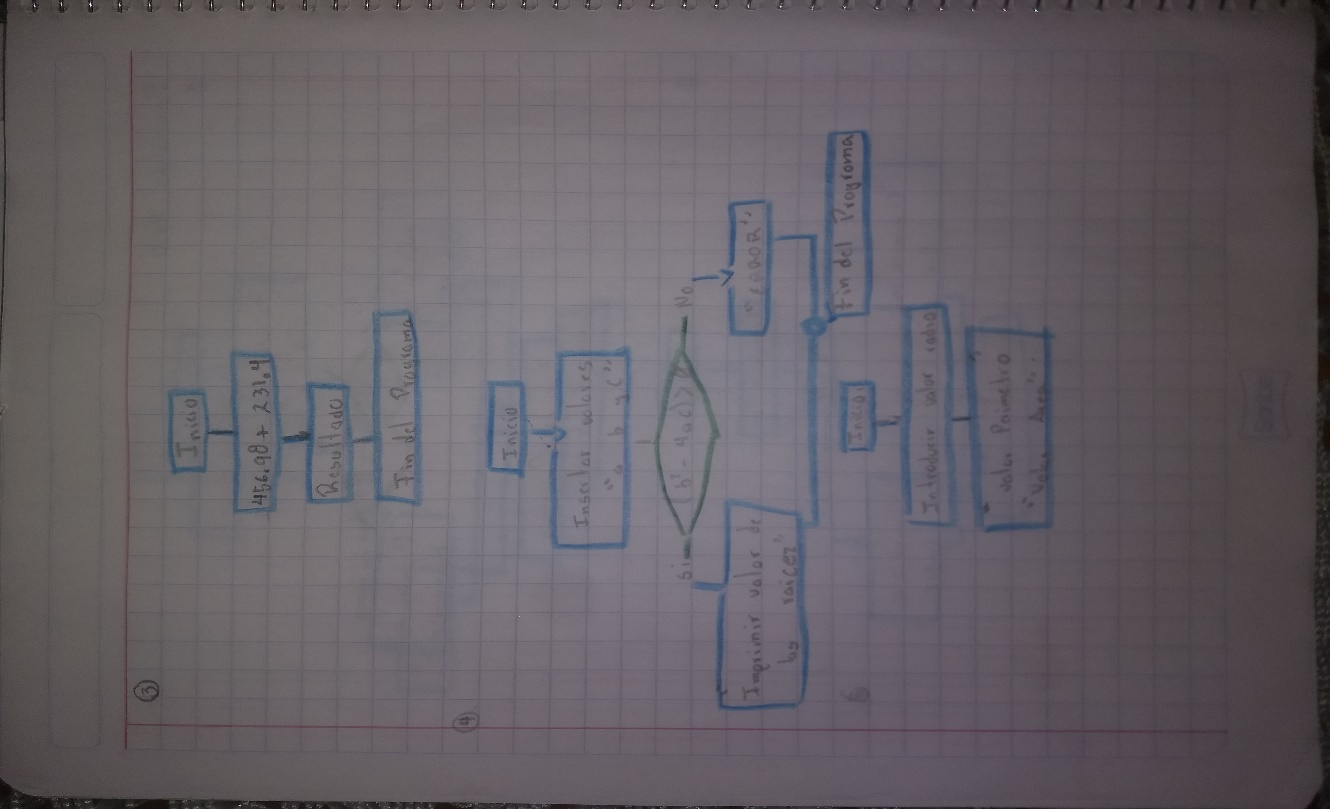 ③
Inicio
456.98 + 231.4
Resultado
Fin del Programa
④
Inicio
Insertar valores
"a b y c"
Si
No
Imprimir valor de
raicez"
"ERROR"
Fin del Programa
6
Inicio
Introducir valor radio
" valor Perimetro "
"Valor Area".